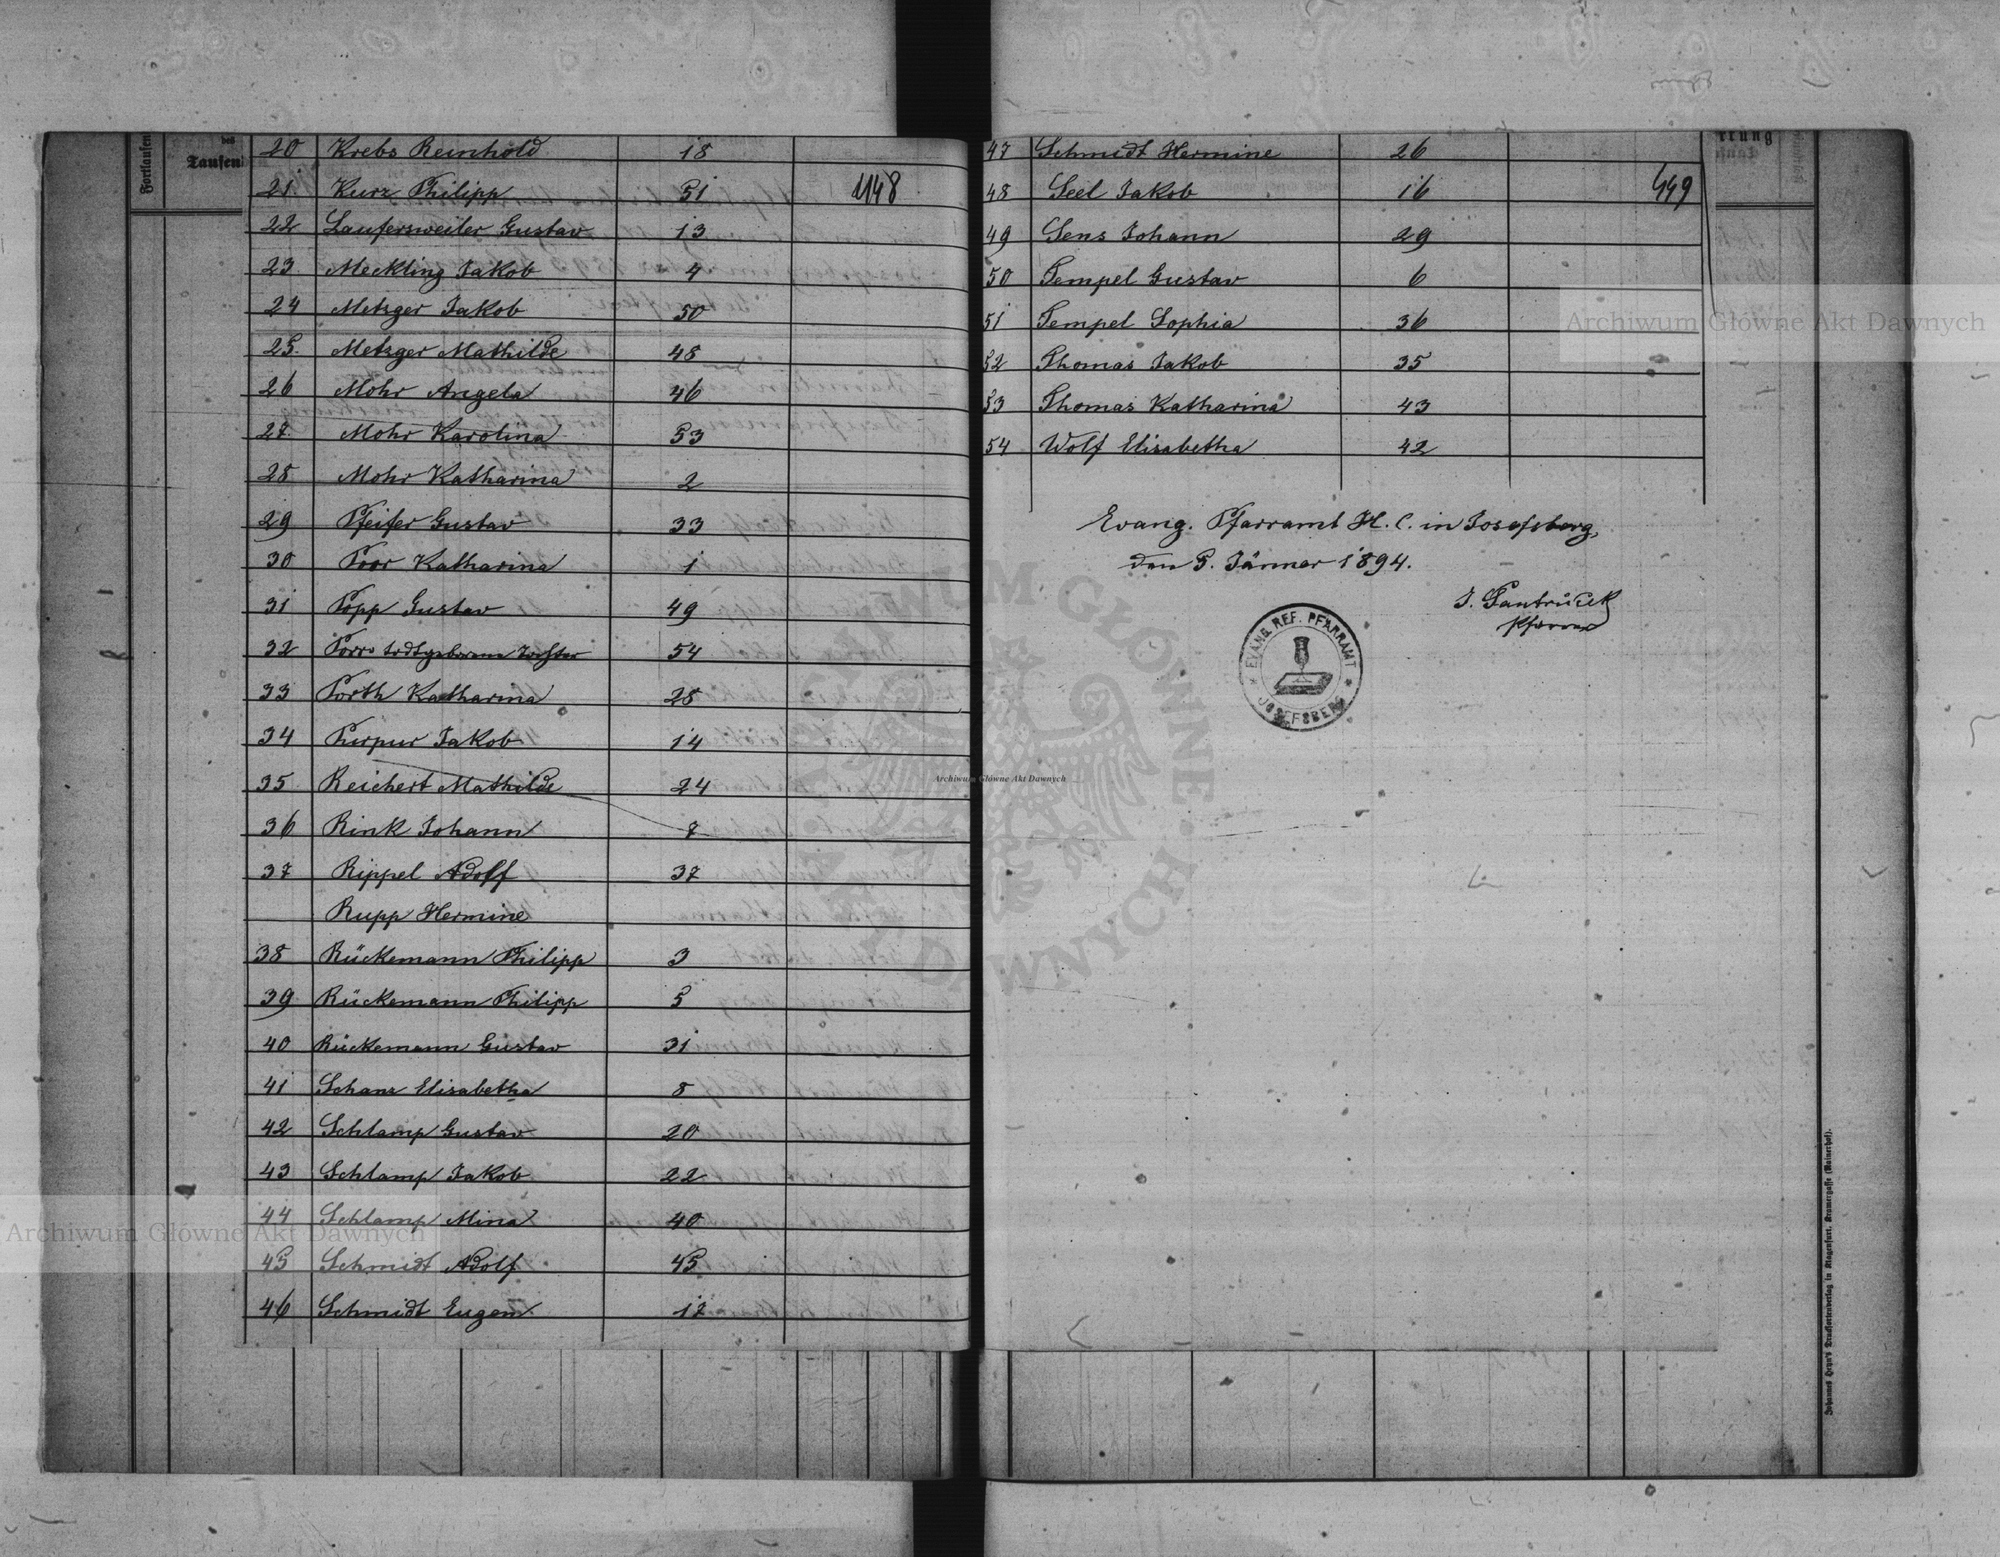 des
Fortlaufen
Taufen
20 Krebs Reinhold 18
21 Kurz Philipp 51 448
22 Laufersweiler Gustav 13
23 Meckling Jakob 4
24 Metzger Jakob 50
25. Metzger Mathilde 48
26 Mohr Angela 46
27. Mohr Karolina 53
28 Mohr Katharina 2
29 Pfeifer Gustav 33
30 Poor Katharina 1
31 Popp Gustav 49
32 Porro todtgeborene Tochter 54
33 Porth Katharina 28
34 Purpur Jakob 14
35 Reichert Mathilde 24
36 Rink Johann 7
37 Rippel Adolf 37
Rupp Hermine
38 Rückemann Philipp 3
39 Rückemann Philipp 5
40 Rückemann Gustav 31
41 Schanz Elisabetha 8
42 Schlamp Gustav 20
43 Schlamp Jakob 22
44 Schlamp Mina 40
45 Schmidt Adolf 45
46 Schmidt Eugen 12
47 Schmidt Hermine 26
48 Seel Jakob 16 449
49 Sens Johann 29
50 Tempel Gustav 6
51 Tempel Sophia 36
52 Thomas Jakob 35
53 Thomas Katharina 43
54 Wolf Elisabetha 42
Evang. Pfarramt H. C. in Josefsberg,
den 5. Jänner 1894.
J. Pantrůček
Pfarrer
EVANG. REF. PFARRAMT
JOSEFSBERG
Archiwum Główne Akt Dawnych
Archiwum Główne Akt Dawnych
Archiwum Główne Akt Dawnych
ARCHIWUM GŁÓWNE AKT DAWNYCH